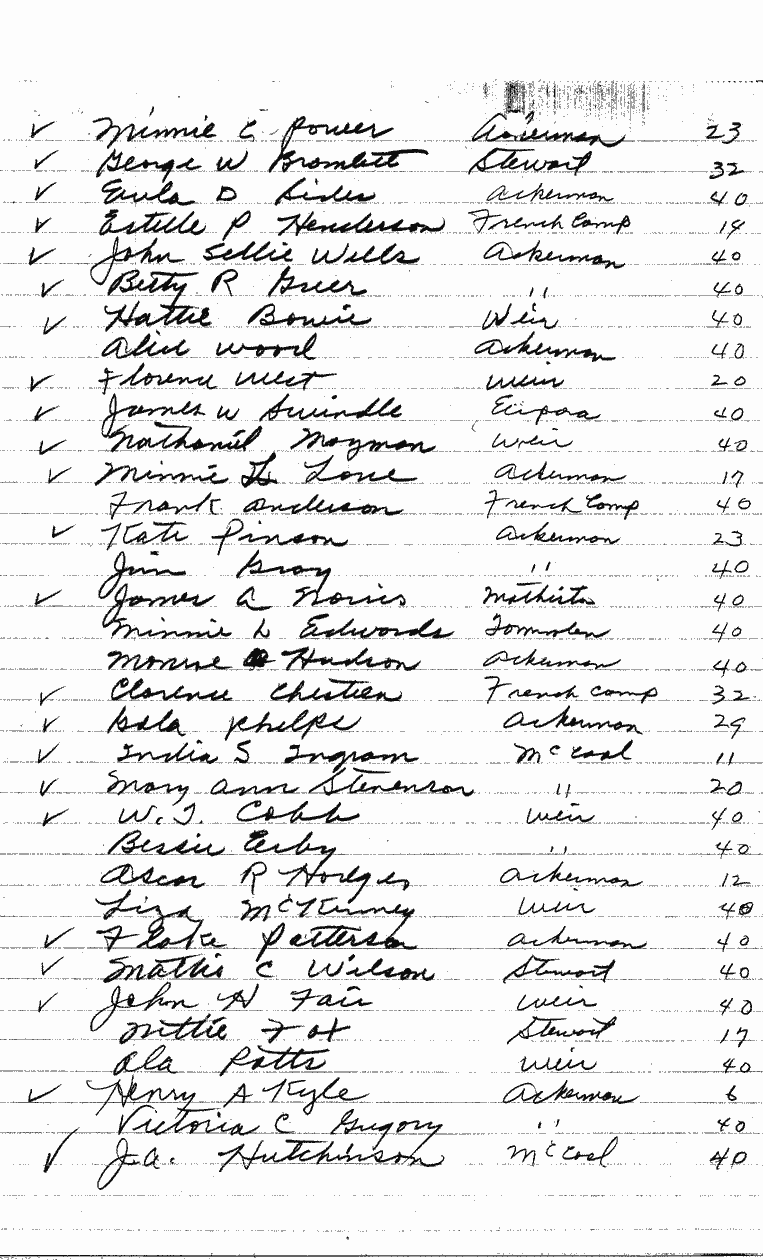 ✓ Minnie C Power Ackerman 23
✓ George W Bramlett Stewart 32
✓ Eula D Sides Ackerman 40
✓ Estelle P Henderson French Camp 19
✓ John Sellie Wells Ackerman 40
✓ Betty R Greer " 40
✓ Hattie Bowie Weir 40
Alice Wood Ackerman 40
✓ Florence West Weir 20
✓ James W Swindle Eupora 40
✓ Nathaniel Mayman Weir 40
✓ Minnie Love Ackerman 17
Frank Anderson French Camp 40
✓ Kate Pinson Ackerman 23
Jim Gray " 40
✓ James A Norris Mathiston 40
Minnie L Edwards 40
Monroe Hudson Ackerman 40
✓ Clarence Chestien French Camp 32
✓ Phelps Ackerman 29
✓ India S Ingram McCool 11
✓ Mary Ann Stevenson " 20
✓ W. T. Cobb Weir 40
Bessie Erby " 40
Oscar R Hodges Ackerman 12
Liza McKinney Weir 40
✓ Flake Patterson Ackerman 40
✓ Mattie C Wilson Stewart 40
✓ John H Fair Weir 40
Nettie Fox Stewart 17
Ola Potts Weir 40
✓ Henry A Kyle Ackerman 6
Victoria C Gregory " 40
✓ J.A. Hutchinson McCool 40